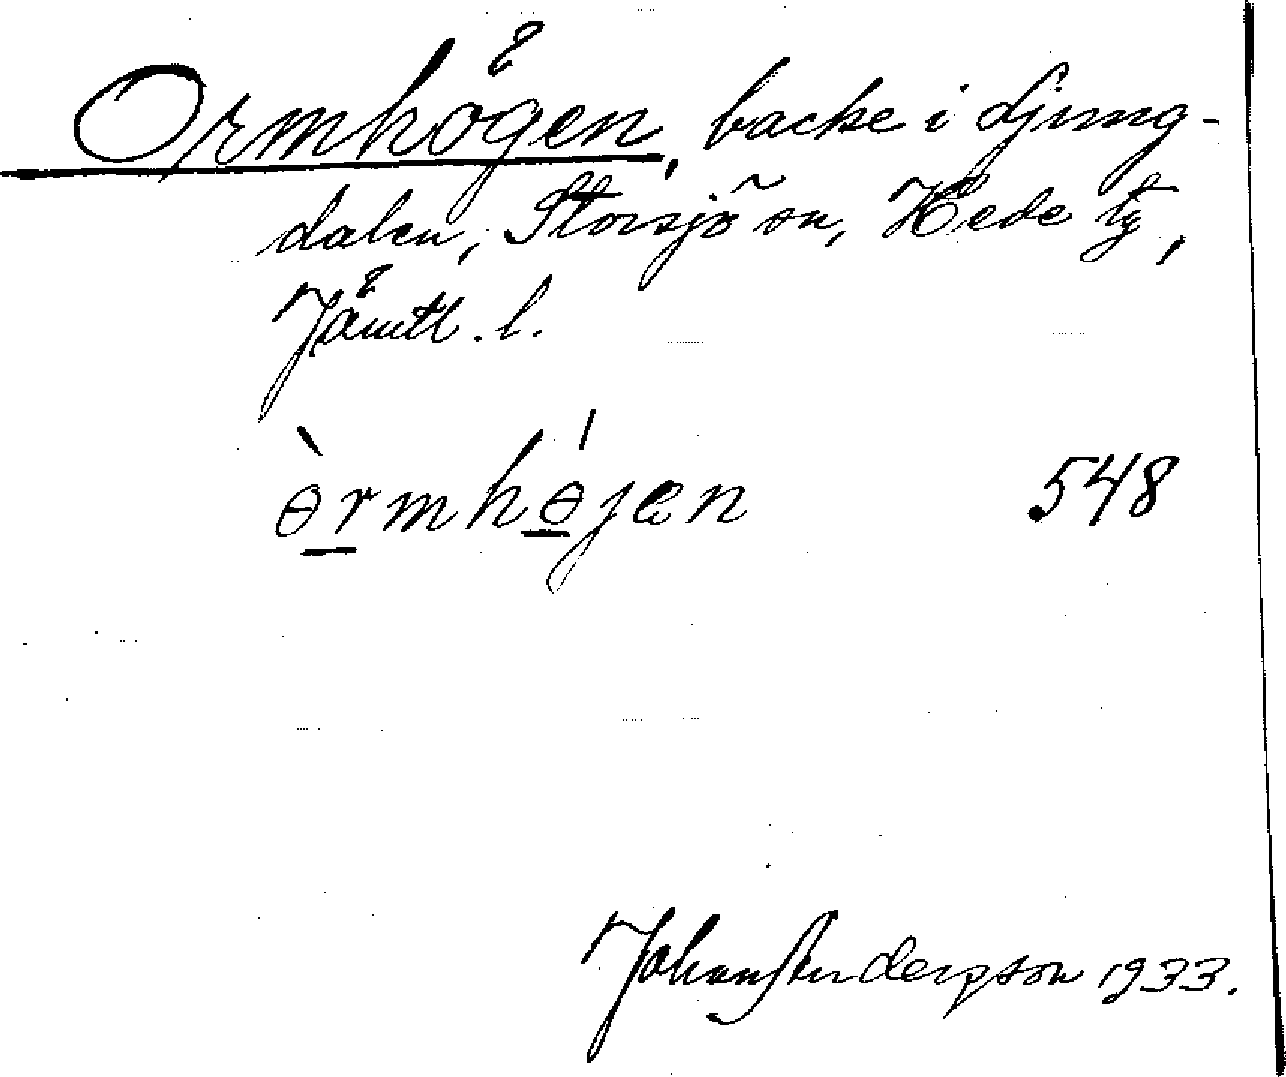 Ormhögen, backe i Ljung-
dalen, Storsjö sn, Hede tg,
Jämtl. l.
ɵ̀rmhɵ́jen 548
Johan Anderson 1933.